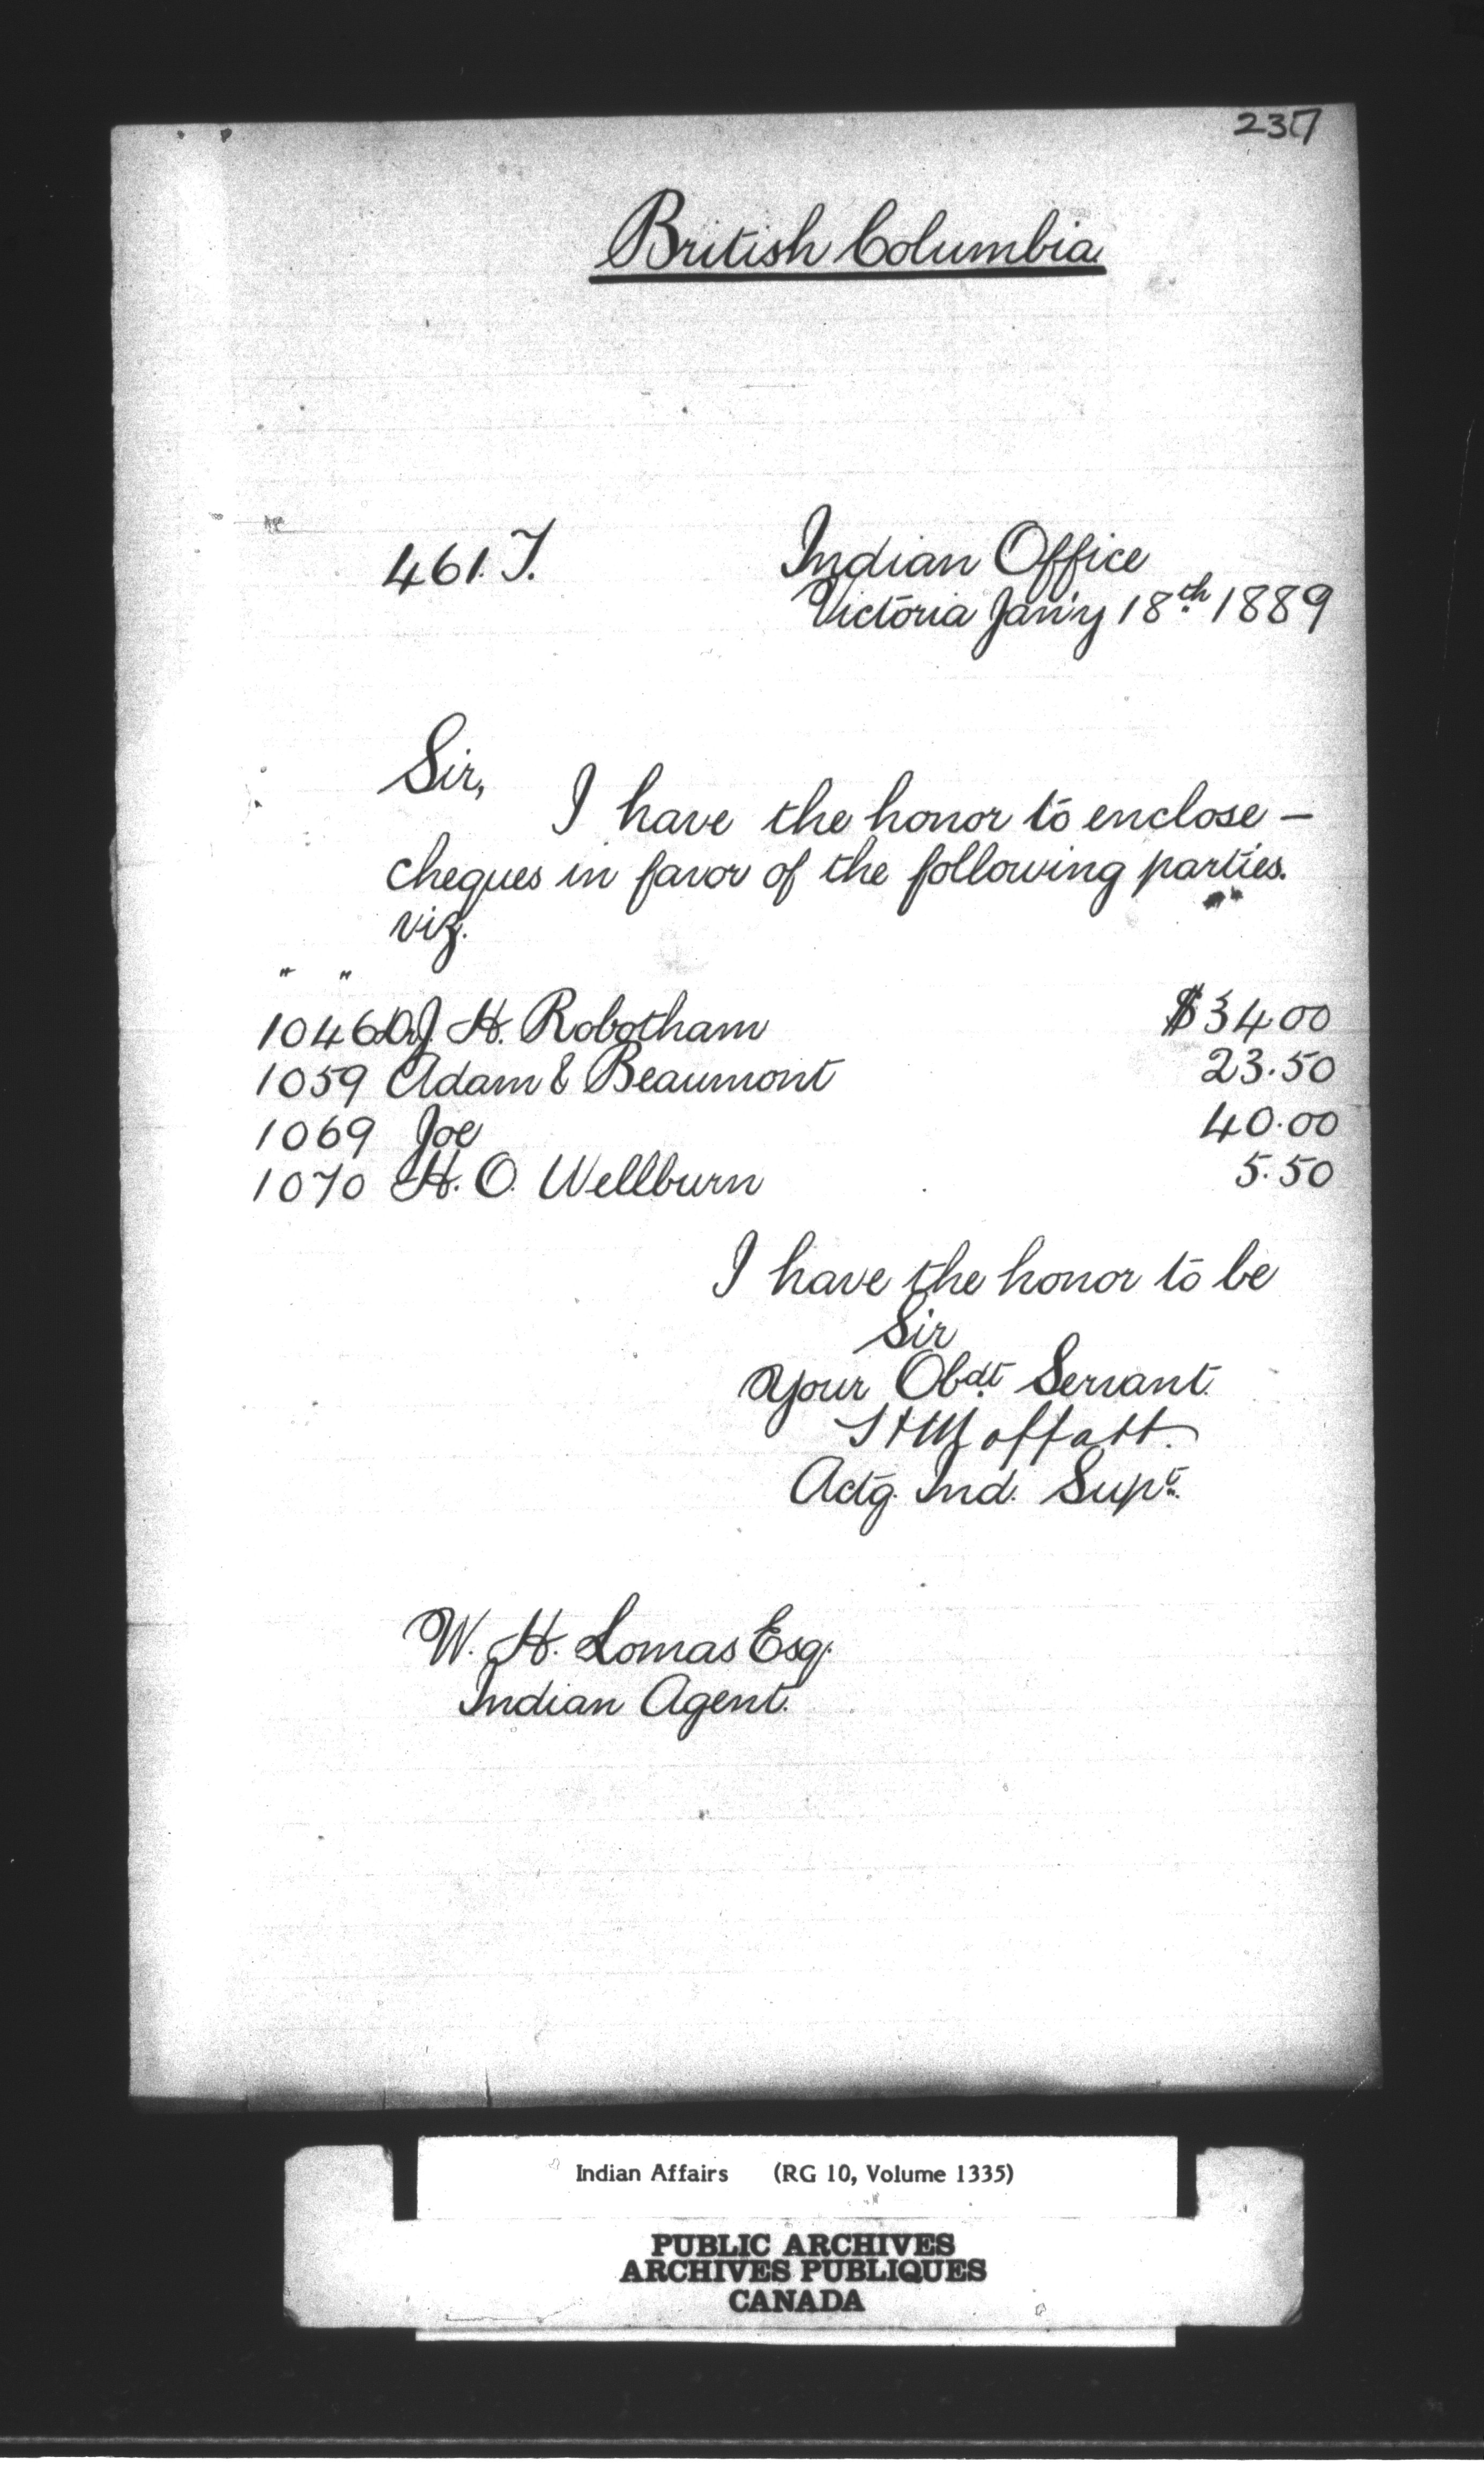 237
British Columbia
461. T.
Indian Office
Victoria Jan'y 18th 1889
Sir,
I have the honor to enclose –
cheques in favor of the following parties.
viz.
" "
1046 Dr J. H. Robotham $34.00
1059 Adam & Beaumont 23.50
1069 Joe 40.00
1070 H. O. Wellburn 5.50
I have the honor to be
Sir
Your Obdt Servant.
Moffatt.
Actg. Ind. Supt.
W. H. Lomas Esq.
Indian Agent.
Indian Affairs (RG 10, Volume 1335)
PUBLIC ARCHIVES
ARCHIVES PUBLIQUES
CANADA